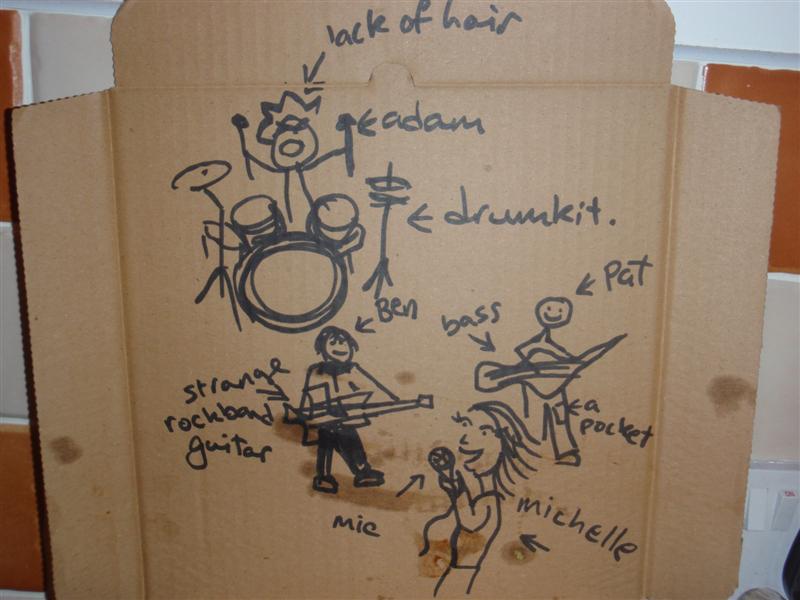 lack of hair
adam
drumkit.
Ben
Pat
bass
strange
rockband
guitar
a
pocket
mic
michelle